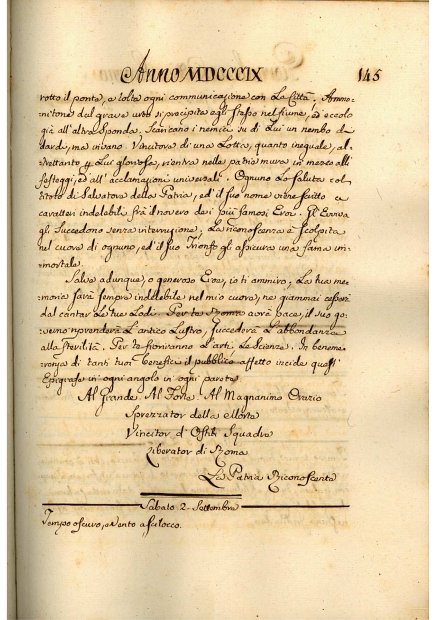 Anno MDCCCIX 145
rotto il ponte, e tolta ogni communicazione con La Città; Ammo-
nitone del grave urto si precipita egli stesso nel fiume, ed eccolo
già all'altra sponda. Scaricano i nemici su di Lui un nembo di
dardi, ma invano. Vincitore di una Lotta, quanto ineguale, al-
trettanto p Lui gloriosa, rientra nelle patrie mura in mezzo alli
festeggi, ed all'acclamazioni universali. Ognuno Lo saluta col
titolo di Salvatore della Patria, ed il suo nome viene scritto a
caratteri indelebili frà il novero de i più famosi Eroi. Gl' Evviva
gli succedono senza interruzione; La riconoscenza è scolpita
nel cuore di ognuno, ed il suo Trionfo gli assicura una fama im-
mortale.
Salve adunque, o generoso Eroe, io ti ammiro; La tua me-
moria sarà sempre indelebile nel mio cuore, ne giammai cesserò
dal cantar Le tue Lodi. Per te Roma avrà pace, il suo go-
verno riprenderà L'antico Lustro, succederà L'abbondanza
alla sterilità. Per te fioriranno L'arti, Le Scienze. In beneme-
renza di tanti tuoi benefici il pubblico affetto incide questi
Epigrafe in ogni angolo in ogni parete
Al Grande Al Forte Al Magnanimo Orazio
Sprezzator della Morte
Vincitor d'Ostili Squadre
Liberator di Roma
La Patria Riconoscente
Sabato 2. Settembre
Tempo oscuro, e vento a scilocco.